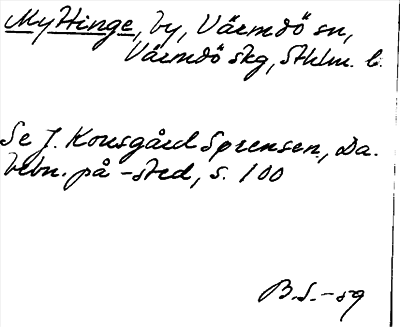 Myttinge, by, Värmdö sn,
Värmdö skg, Sthlm. l.
Se J. Kousgård Sørensen, Da.
bebn. på -sted, s. 100
B.S.-59